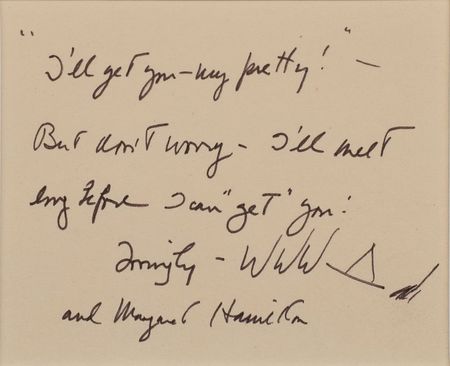 "I'll get you - my pretty!" -
But don't worry - I'll melt
long before I can "get" you!
Lovingly - WWW
and Margaret Hamilton